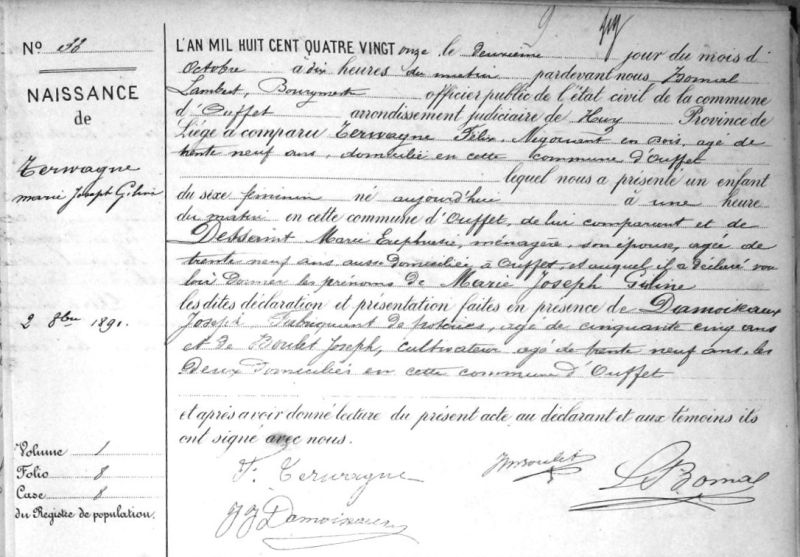 9
N° 33
NAISSANCE
de
Terwagne
Marie Joseph G.
2 8bre 1891.
Volume 1
Folio 8
Case 8
du Registre de population.
L'AN MIL HUIT CENT QUATRE VINGT onze le deuxième jour du mois d'
Octobre à dix heures du matin pardevant nous Bomal
Lambert, Bourgmestre officier public de l'état civil de la commune
d'Ouffet arrondissement judiciaire de Huy Province de
Liége a comparu Terwagne Félix, Négociant en bois, agé de
trente neuf ans, domicilié en cette commune d'Ouffet
lequel nous a présenté un enfant
du sexe féminin né aujourd'hui à une heure
du matin en cette commune d'Ouffet, de lui comparant et de
Dessaint Marie Euphrasie, ménagère, son épouse, agée de
trente neuf ans aussi domiciliée à Ouffet, et auquel il a déclaré vou
loir donner les prénoms de Marie Joseph
les dites déclaration et présentation faites en présence de Damoiseaux
Joseph Fabriquant de poteries, agé de cinquante cinq ans
et de Boulet Joseph, cultivateur agé de trente neuf ans, les
deux domiciliés en cette commune d'Ouffet
et après avoir donné lecture du présent acte au déclarant et aux témoins ils
ont signé avec nous.
F. Terwagne
Boulet
L Bomal
JJ Damoiseaux